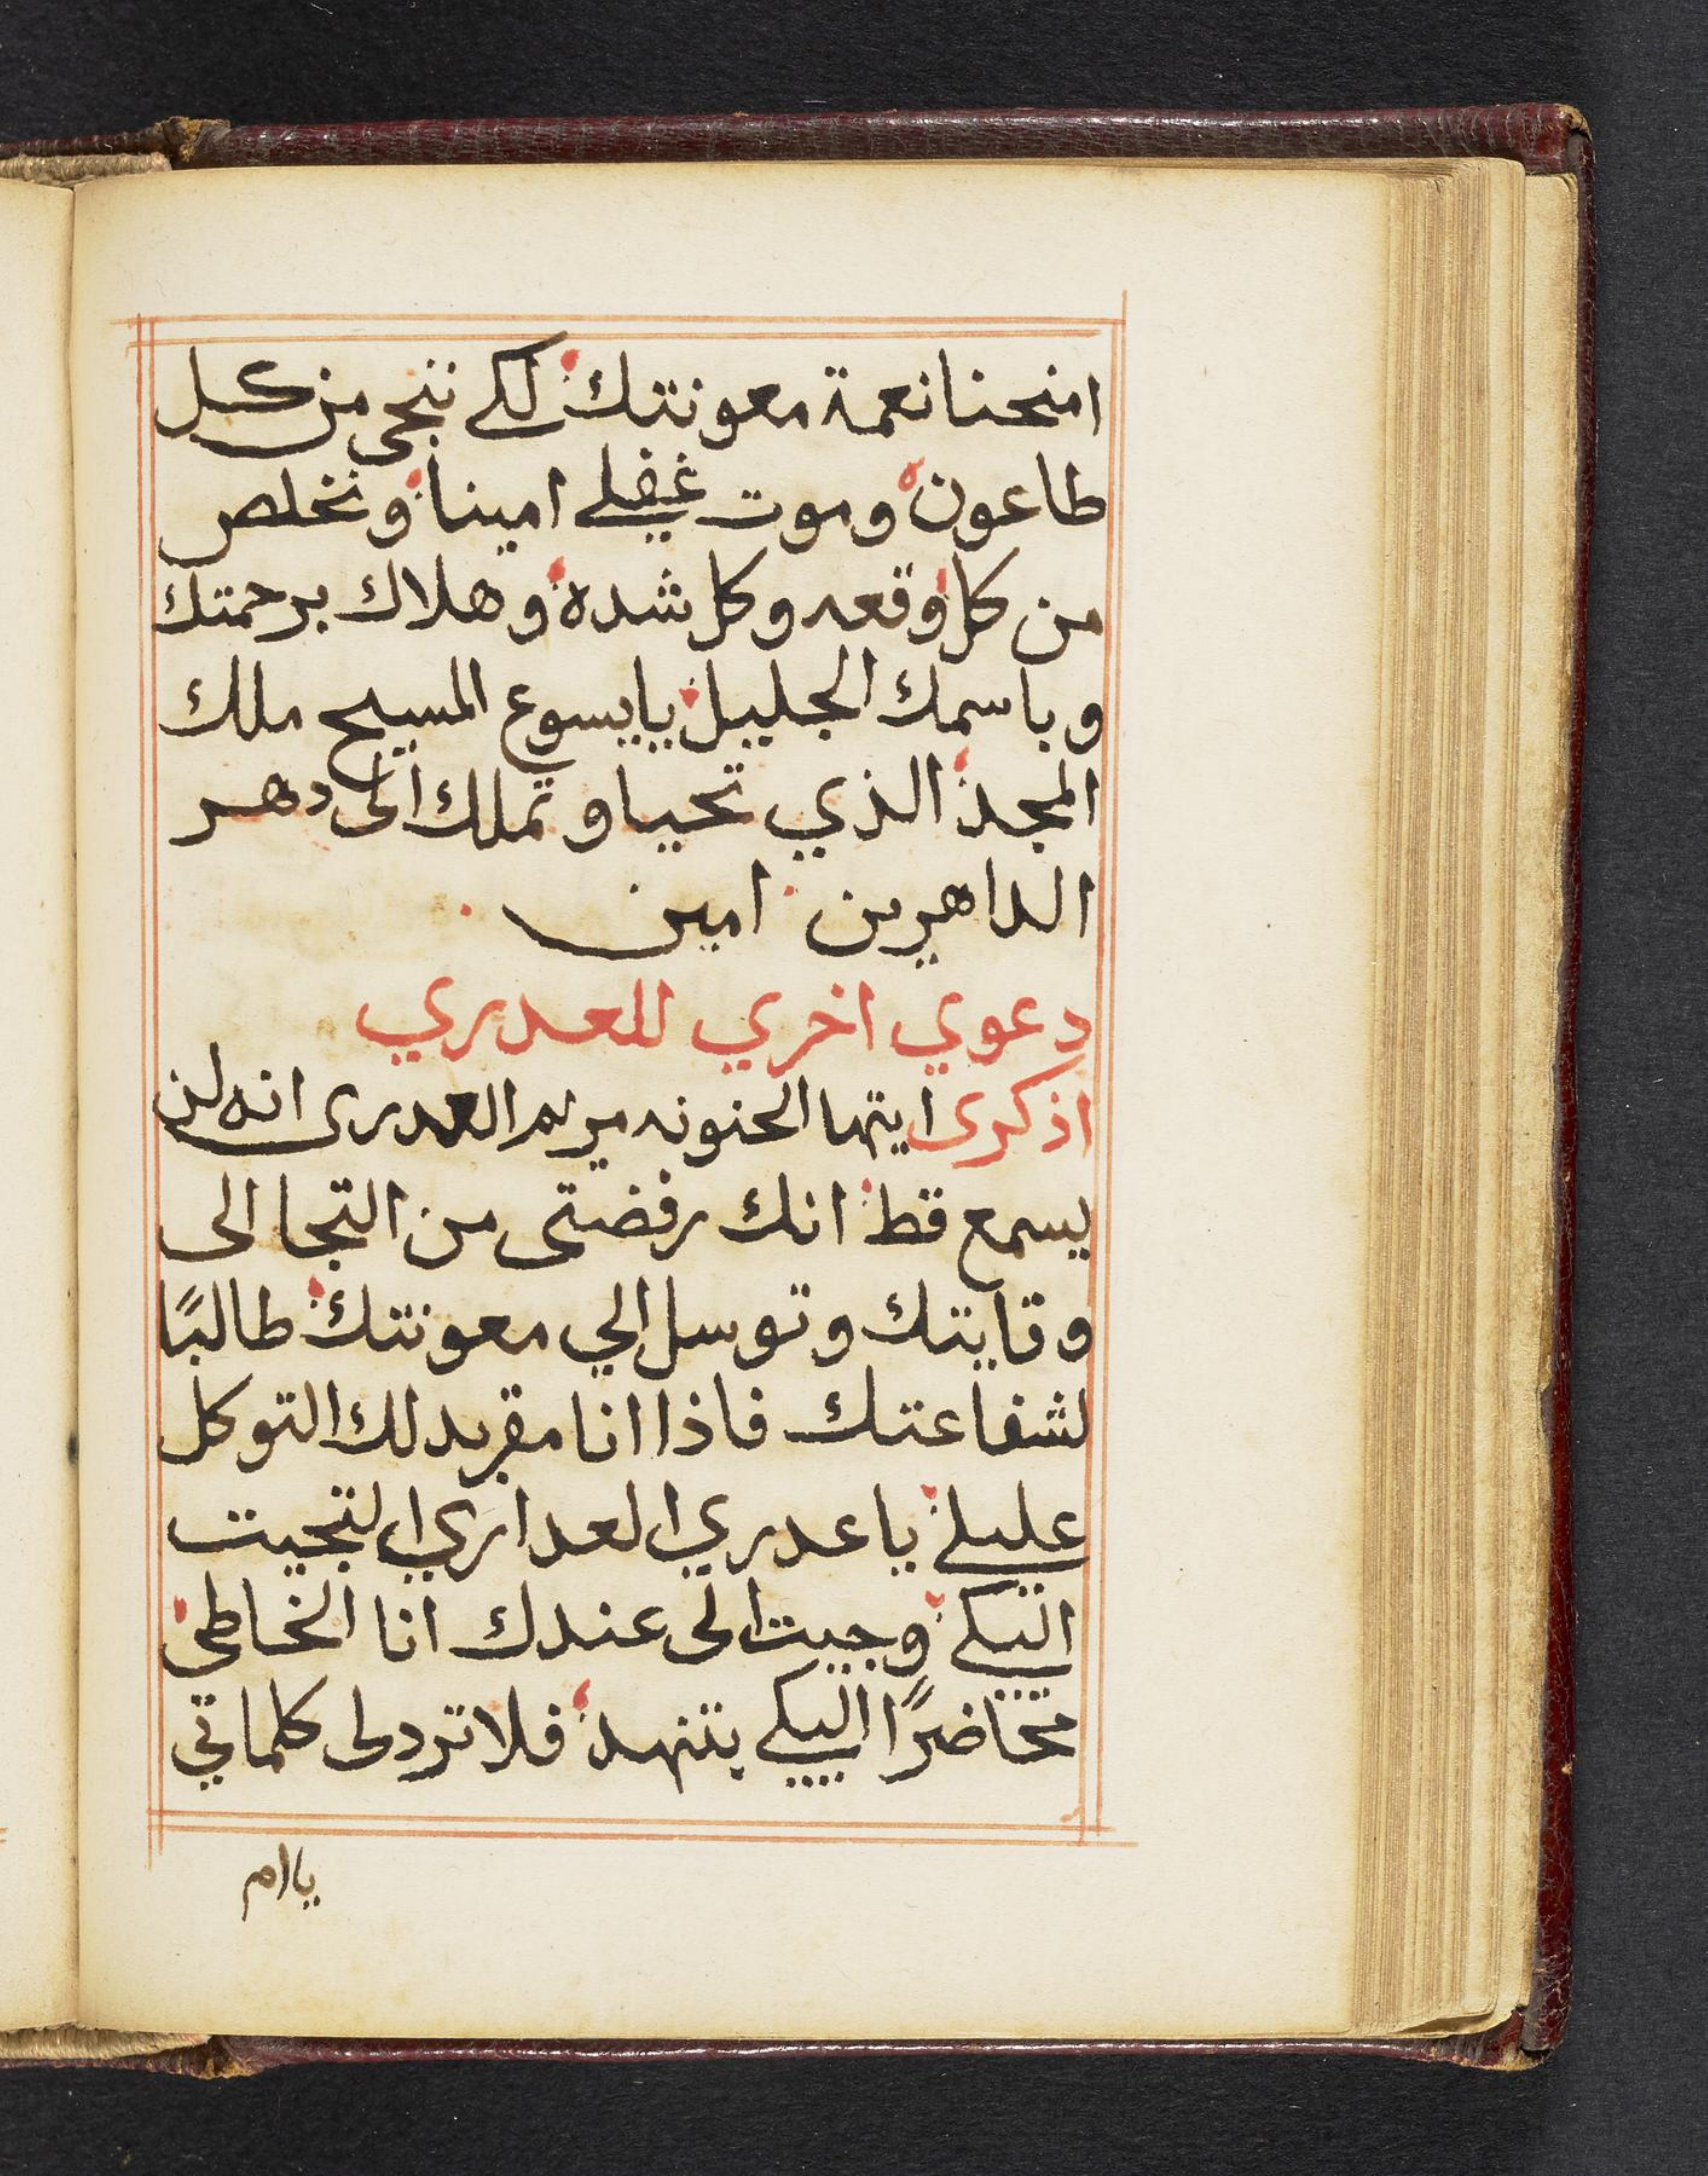 امنحنا نعمة معونتك لكي ننجى من كل
طاعون وموت غفلي امينا ونخلص
من كل وقعه وكل شده وهلاك برحمتك
وباسمك الجليل يايسوع المسيح ملك
المجد الذي تحيا وتملك الى دهر
الداهرين امين
دعوي اخري للعدري
اذكرى ايتها الحنونه مريم العدرى انه لن
يسمع قط انك رفضتى من التجا الى
وقايتك وتوسل الي معونتك طالبًا
لشفاعتك فاذا انا مقر بدلك التوكل
عليلي ياعدري العداري التجيت
اليكي وجيت الى عندك انا الخاطي
مخاضرًا اليكي بتنهد فلا تردلى كلماتي
ياام